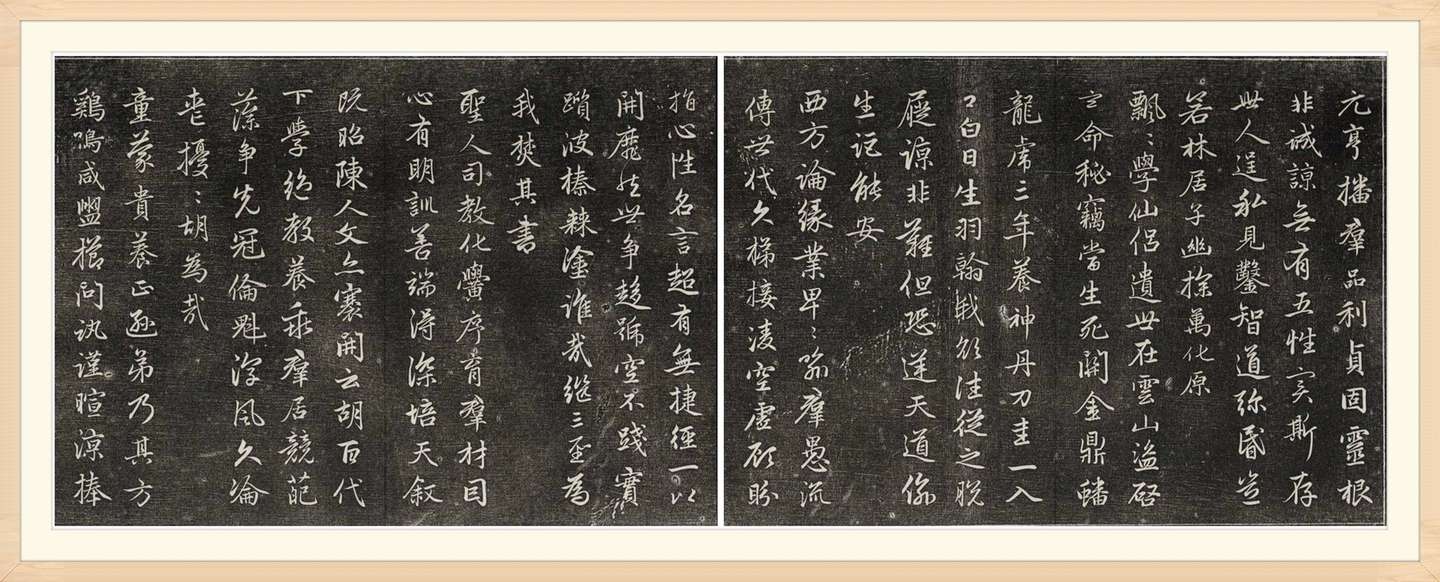 元亨播羣品利貞固靈根
非誠諒無有五性實斯存
世人逞私見鑿智道弥昏豈
若林居子幽探萬化原
飄〻學仙侶遺世在雲山盜啓
玄命秘竊當生死關金鼎蟠
龍虎三年養神丹刀圭一入
口白日生羽翰我欲往從之脫
屣諒非難但恐逆天道偷
生詎能安
西方論緣業卑〻喻羣愚流
傳世代久梯接凌空虛顧盼
指心性名言超有無捷徑一以
開靡然世爭趨號空不踐實
躓彼榛棘塗誰哉繼三聖為
我焚其書
聖人司教化黌序育羣材因
心有明訓善端得深培天叙
既昭陳人文亦褰開云胡百代
下學絕教養乖羣居競葩
藻爭先冠倫魁淳風久淪
喪擾〻胡為哉
童蒙貴養正遜弟乃其方
鷄鳴咸盥櫛問訊謹暄涼捧